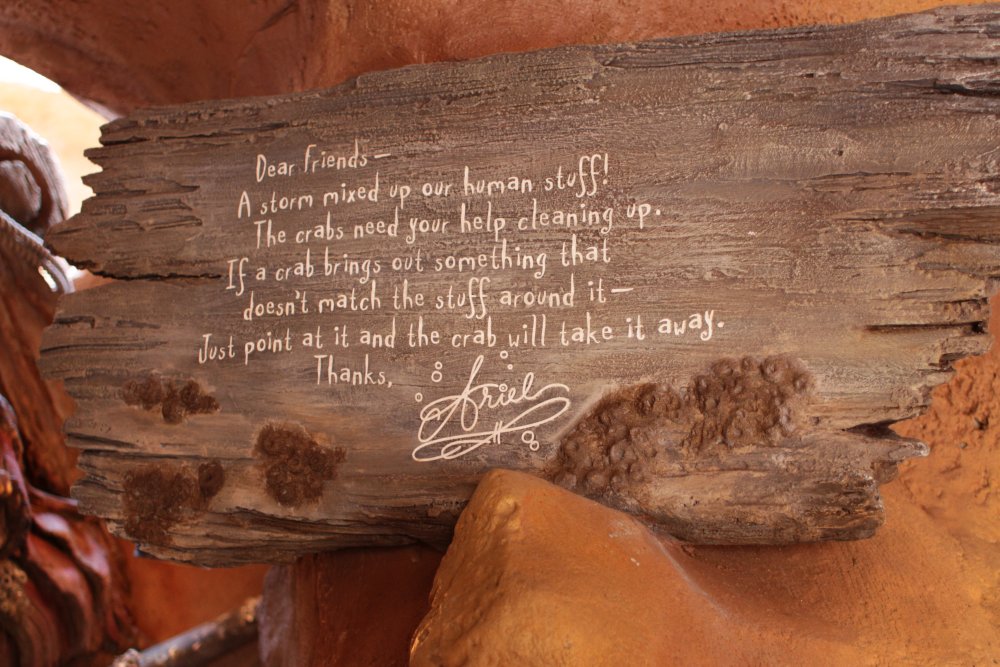 Dear Friends—
A storm mixed up our human stuff!
The crabs need your help cleaning up.
If a crab brings out something that
doesn't match the stuff around it—
Just point at it and the crab will take it away.
Thanks,
Ariel